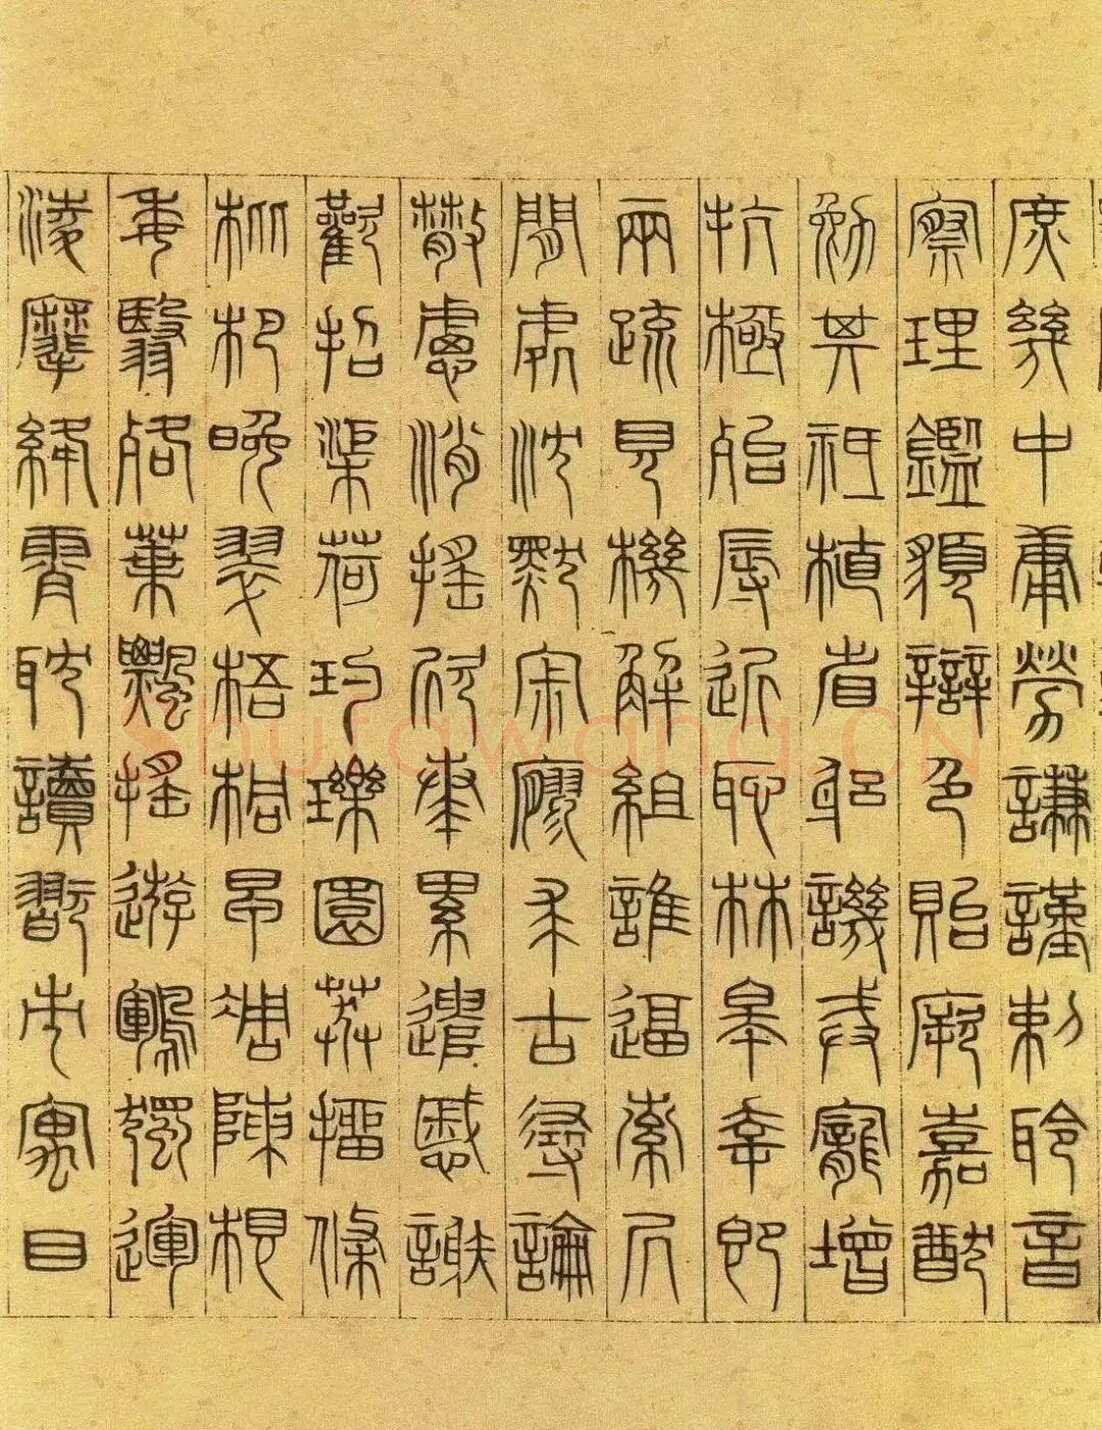 庶幾中庸勞謙謹敕聆音
察理鑑貌辯色貽厥嘉猷
勉其祗植省躬譏戒寵增
抗極殆辱近恥林皋幸即
兩疏見機解組誰逼索凥
閒處沈默寂寥求古尋論
散慮消搖欣奏累遣慼謝
歡招渠荷玓瓅園莽擂條
枇杷晚翠梧桐早凋陳根
委翳落葉飄搖遊鵾獨運
淩摩絳霄耽讀翫市寓目
shufawang.CN